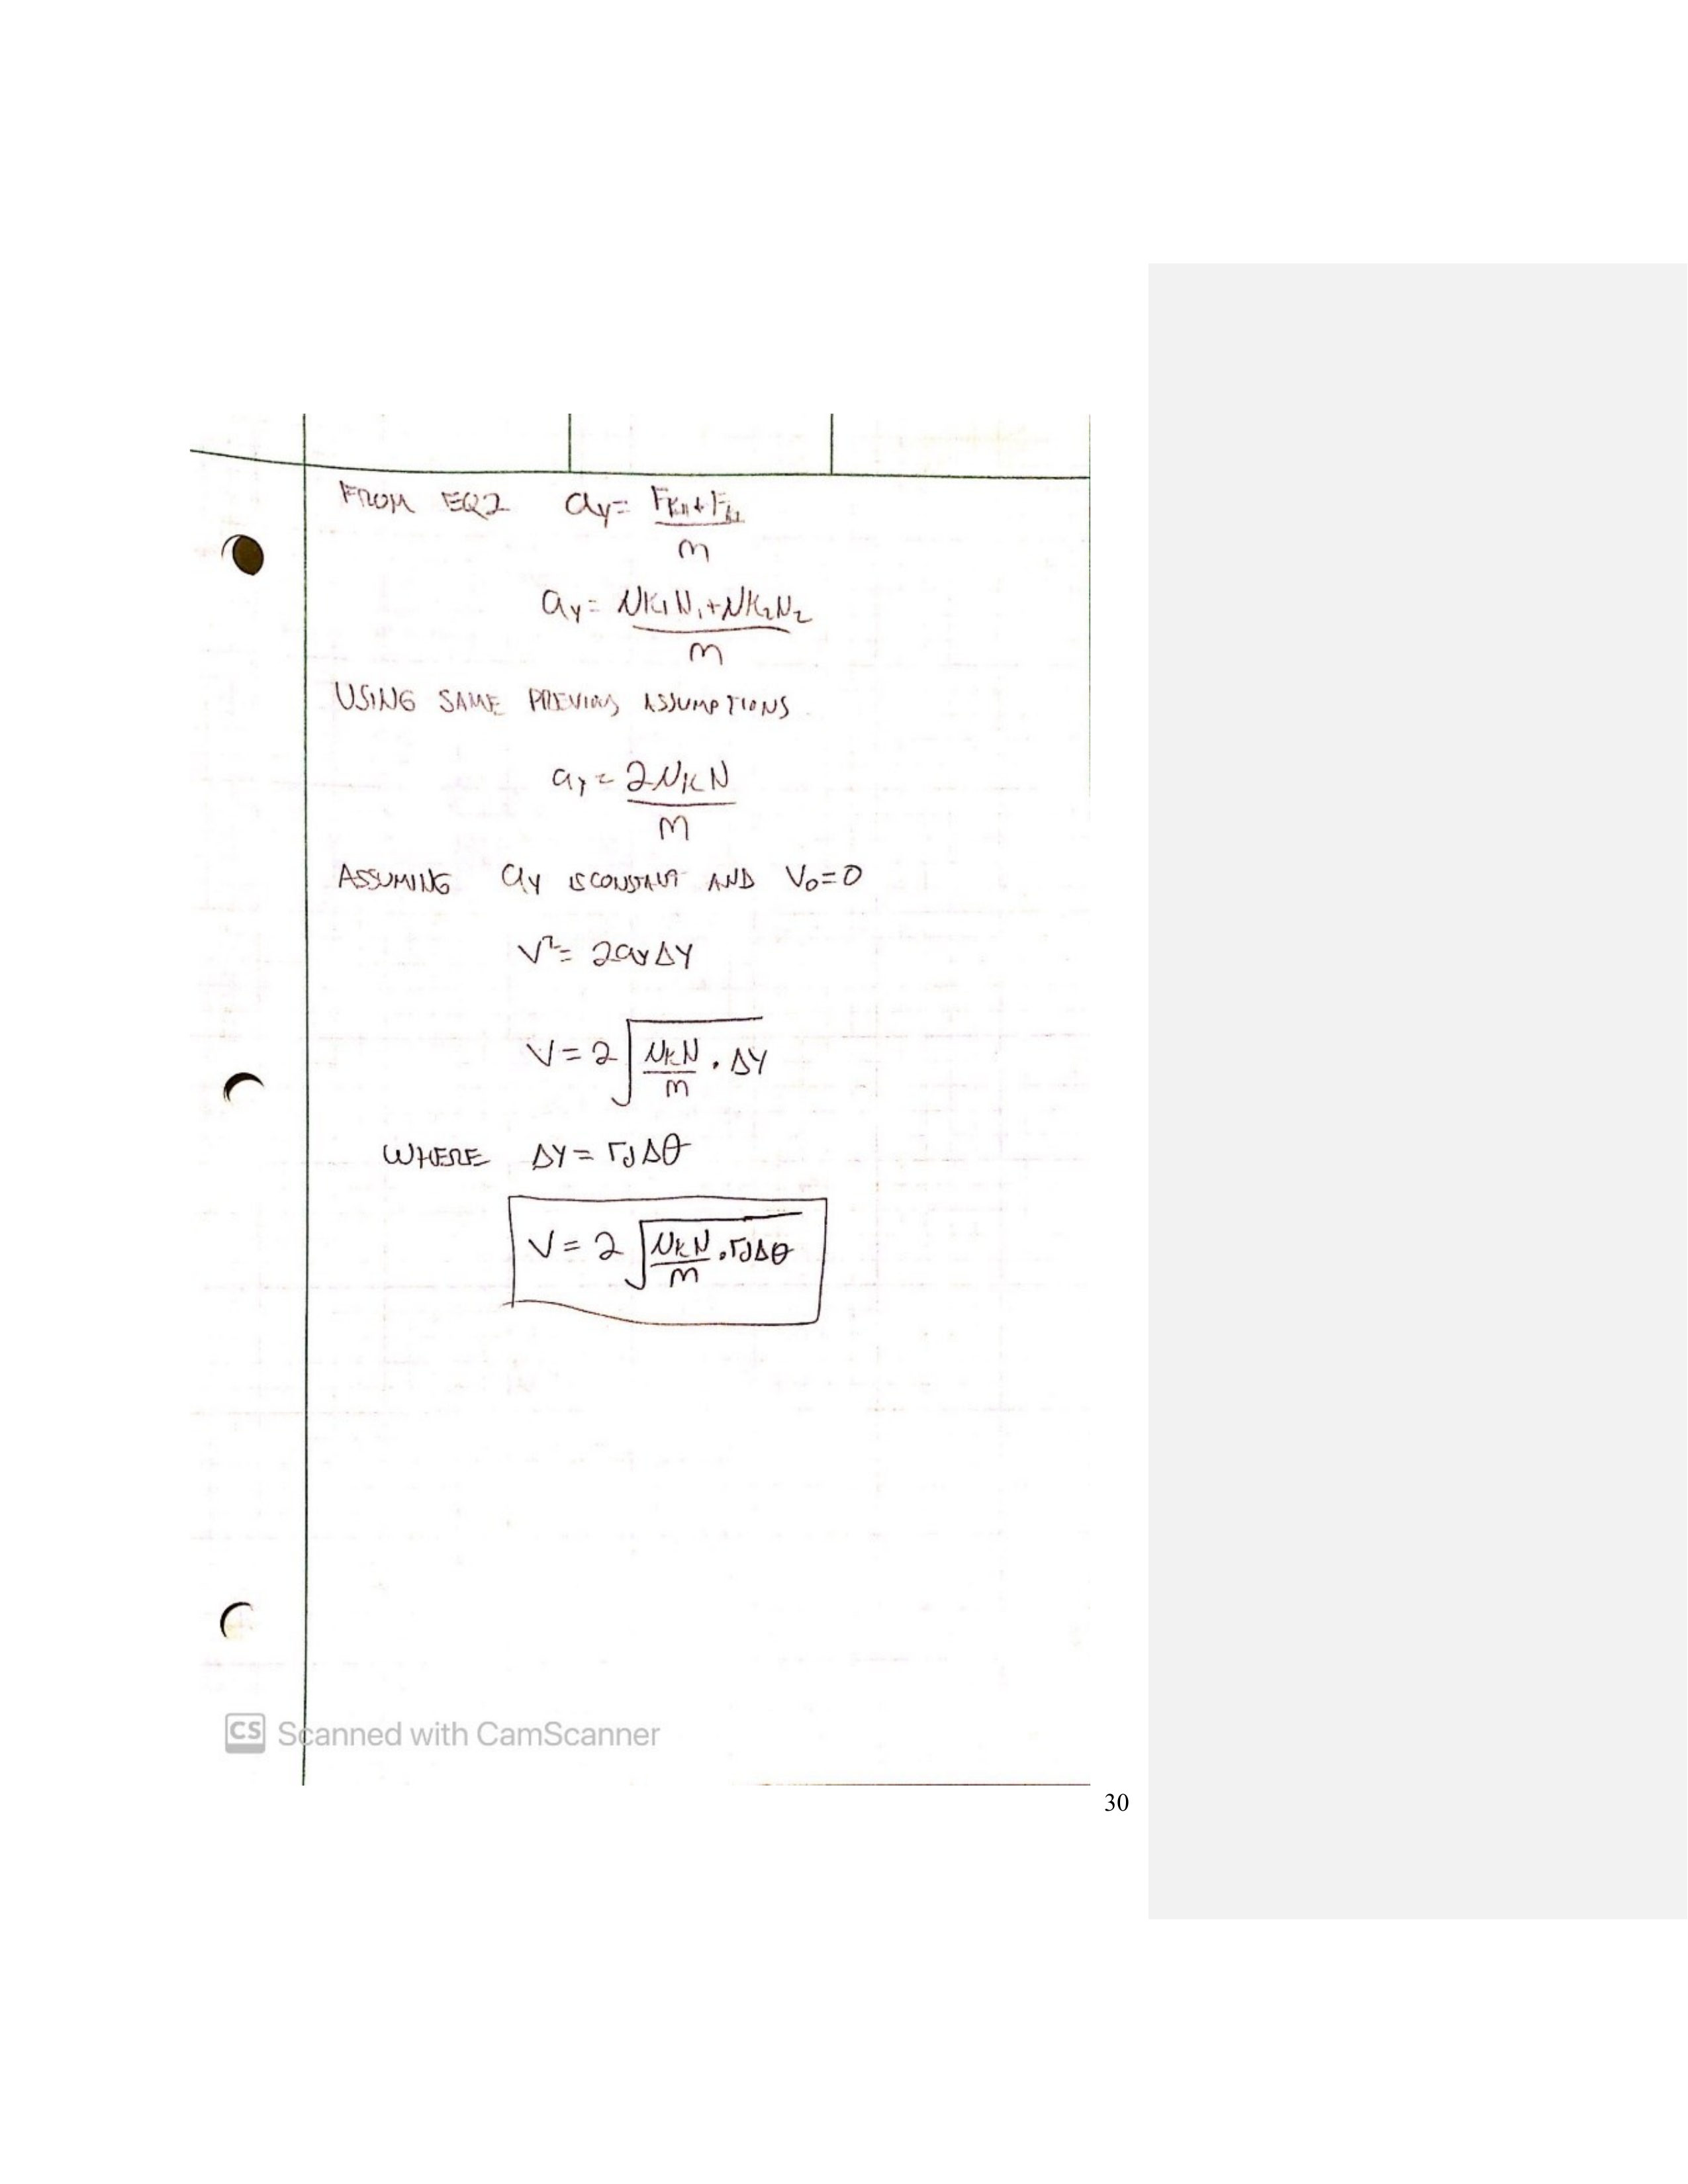 FROM EQ2 ay = Fk1 + Fk2
m
ay = μk1 N1 + μk2 N2
m
USING SAME PREVIOUS ASSUMPTIONS
ay = 2μkN
m
ASSUMING ay IS CONSTANT AND V0=0
V² = 2ayΔY
V = 2√(μkN/m · ΔY)
WHERE ΔY = rJΔθ
V = 2√(μkN/m · rJΔθ)
CS Scanned with CamScanner
30